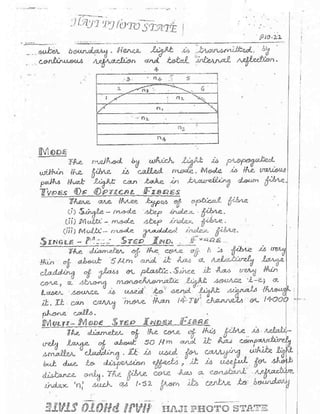 HAJI PHOTO STATE
P10-22
outer boundary. Hence light is transmitted, by
continuous refraction and total internal reflection.
4
3 n4 5
2 n3 6
1 n2
n1
n2
n3
n4
MODE
The method by which light is propogated
within the fibre is called mode. Mode is the various
paths that light can take in travelling down fibre.
TYPES OF OPTICAL FIBRES
There are three types of optical fibre
(i) Single-mode step index fibre.
(ii) Multi-mode step index fibre.
(iii) Multi-mode gradded index fibre.
SINGLE - STEP IND. FIBRE
The diameter of the core of fibre is very
thin of about 5 Hm and it has a relatively large
cladding of glass or plastic. Since it has very thin
core, a strong monochromatic light source i-e; a
Laser source is used to send light signals through
it. It can carry more than 14 TV channels or 14000
phone calls.
MULTI-MODE STEP INDEX FIBRE
The diameter of the core of this fibre is relati-
vely large of about 50 Hm and it has comparatively
smaller cladding. It is used for carrying white light
but due to dispersion effects, it is useful for short
distance only. The fibre core has a constant refractive
index 'n', such as 1-52 from its centre to boundary
HAJI PHOTO STATE HAJI PHOTO STATE